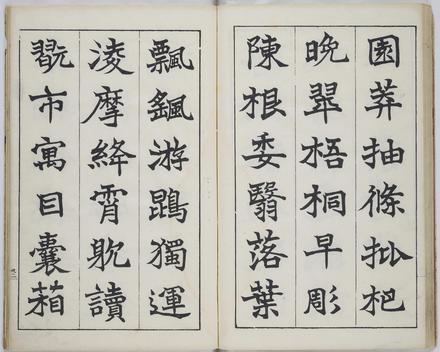 園莽抽條批杷
晚翠梧桐早彫
陳根委翳落葉
飄颻游鵾獨運
淩摩絳霄躭讀
翫市寓目囊箱